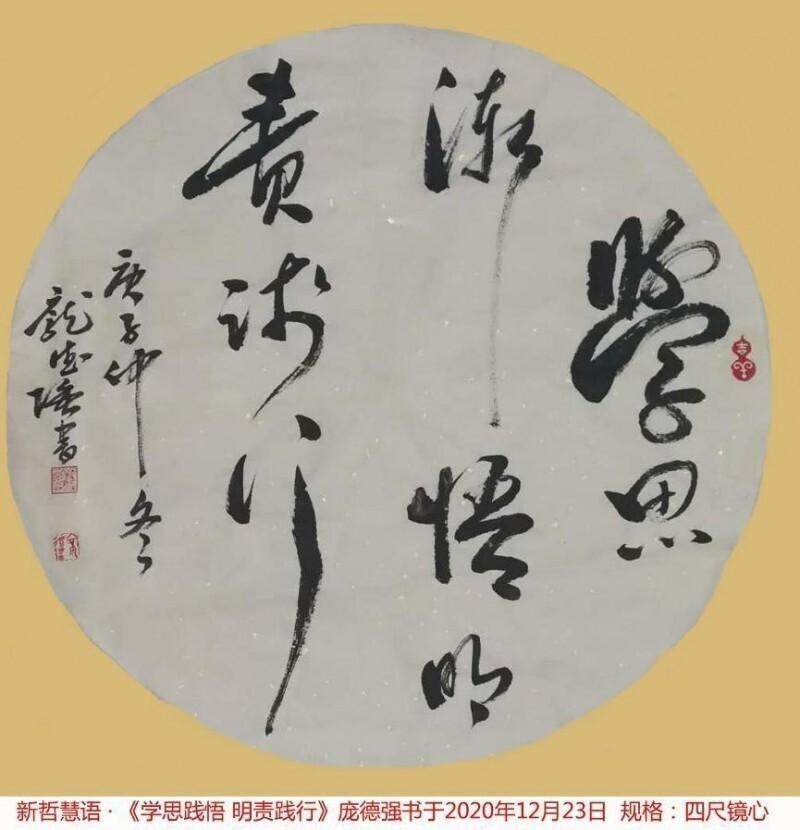 學思
漸悟明
責踐行
庚子仲冬
龐德强書
吉羊
新哲慧语·《学思践悟 明责践行》庞德强书于2020年12月23日 规格：四尺镜心